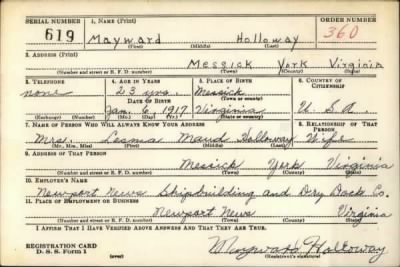 SERIAL NUMBER 1. NAME (Print) ORDER NUMBER
619 Mayward Holloway 360
(First) (Middle) (Last)
2. ADDRESS (Print)
Messick York Virginia
(Number and street or R. F. D. number) (Town) (County) (State)
3. TELEPHONE 4. AGE IN YEARS 5. PLACE OF BIRTH 6. COUNTRY OF CITIZENSHIP
none 23 yrs. Messick
DATE OF BIRTH (Town or county)
Jan. 6, 1917 Virginia U. S. A.
(Exchange) (Number) (Mo.) (Day) (Yr.) (State or country)
7. NAME OF PERSON WHO WILL ALWAYS KNOW YOUR ADDRESS 8. RELATIONSHIP OF THAT PERSON
Mrs. Maud Holloway Wife
(Mr., Mrs., Miss) (First) (Middle) (Last)
9. ADDRESS OF THAT PERSON
Messick York Virginia
(Number and street or R. F. D. number) (Town) (County) (State)
10. EMPLOYER'S NAME
Newport News Shipbuilding and Dry Dock Co.
11. PLACE OF EMPLOYMENT OR BUSINESS
Newport News Virginia
(Number and street or R. F. D. number) (Town) (County) (State)
I AFFIRM THAT I HAVE VERIFIED ABOVE ANSWERS AND THAT THEY ARE TRUE.
REGISTRATION CARD
D. S. S. Form 1 (over) Mayward Holloway
(Registrant's signature)